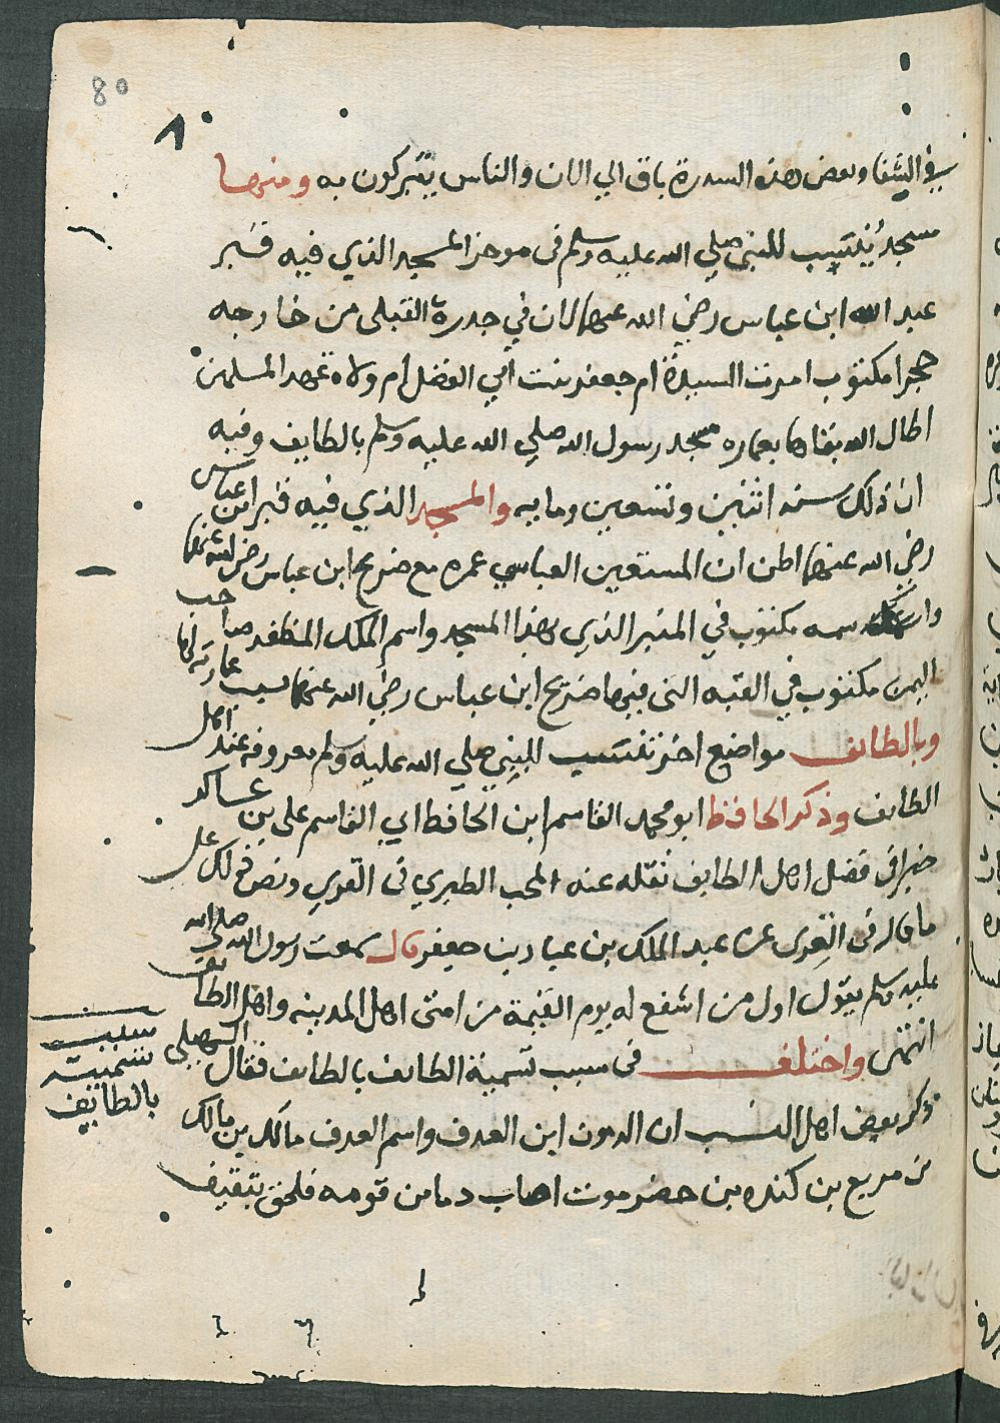 80
٨
في الشفا وبعض هذه السدرة باق الي الان والناس يتبركون به ومنها
مسجد ينتسب للنبي صلي الله عليه وسلم في موخر المسجد الذي فيه قبر
عبد الله ابن عباس رضي الله عنهما لان في جدره القبلي من خارجه
حجرا مكتوب امرت السيدة ام جعفر بنت ابي الفضل ام ولاه عهد المسلمين
اطال الله بقاها بعماره مسجد رسول الله صلي الله عليه وسلم بالطايف وفيه
ان ذلك سنه اثنين وتسعين ومايه والمسجد الذي فيه قبر ابن عباس
رضي الله عنهما اظن ان المستعين العباسي عمره مع ضريح ابن عباس رضي الله عنهما
واسمه مكتوب في المنبر الذي بهذا المسجد واسم الملك المظفر صاحب
اليمن مكتوب في القبه التي فيها ضريح ابن عباس رضي الله عنهما بسبب عمارته لها
وبالطائف مواضع اخر تنتسب للنبي صلي الله عليه وسلم معروفه عند اهل
الطايف وذكر الحافظ ابو محمد القاسم ابن الحافظ ابي القاسم علي بن عساكر
خبرا في فضل اهل الطايف نقله عنه المحب الطبري في القري ونص ذلك علي
ما قال في القري عن عبد الملك بن عباد بن جعفر قال سمعت رسول الله صلي الله
عليه وسلم يقول اول من اشفع له يوم القيمة من امتي اهل المدينه واهل الطايف
انتهي واختلف في سبب تسمية الطائف بالطائف فقال السهيلي
ذكر بعض اهل النسب ان الدمون ابن الصدف واسم الصدف مالك بن مالك
بن مربع بن كنده بن حضرموت اصاب دما من قومه فلحق بثقيف
سبب
تسميته
بالطايف